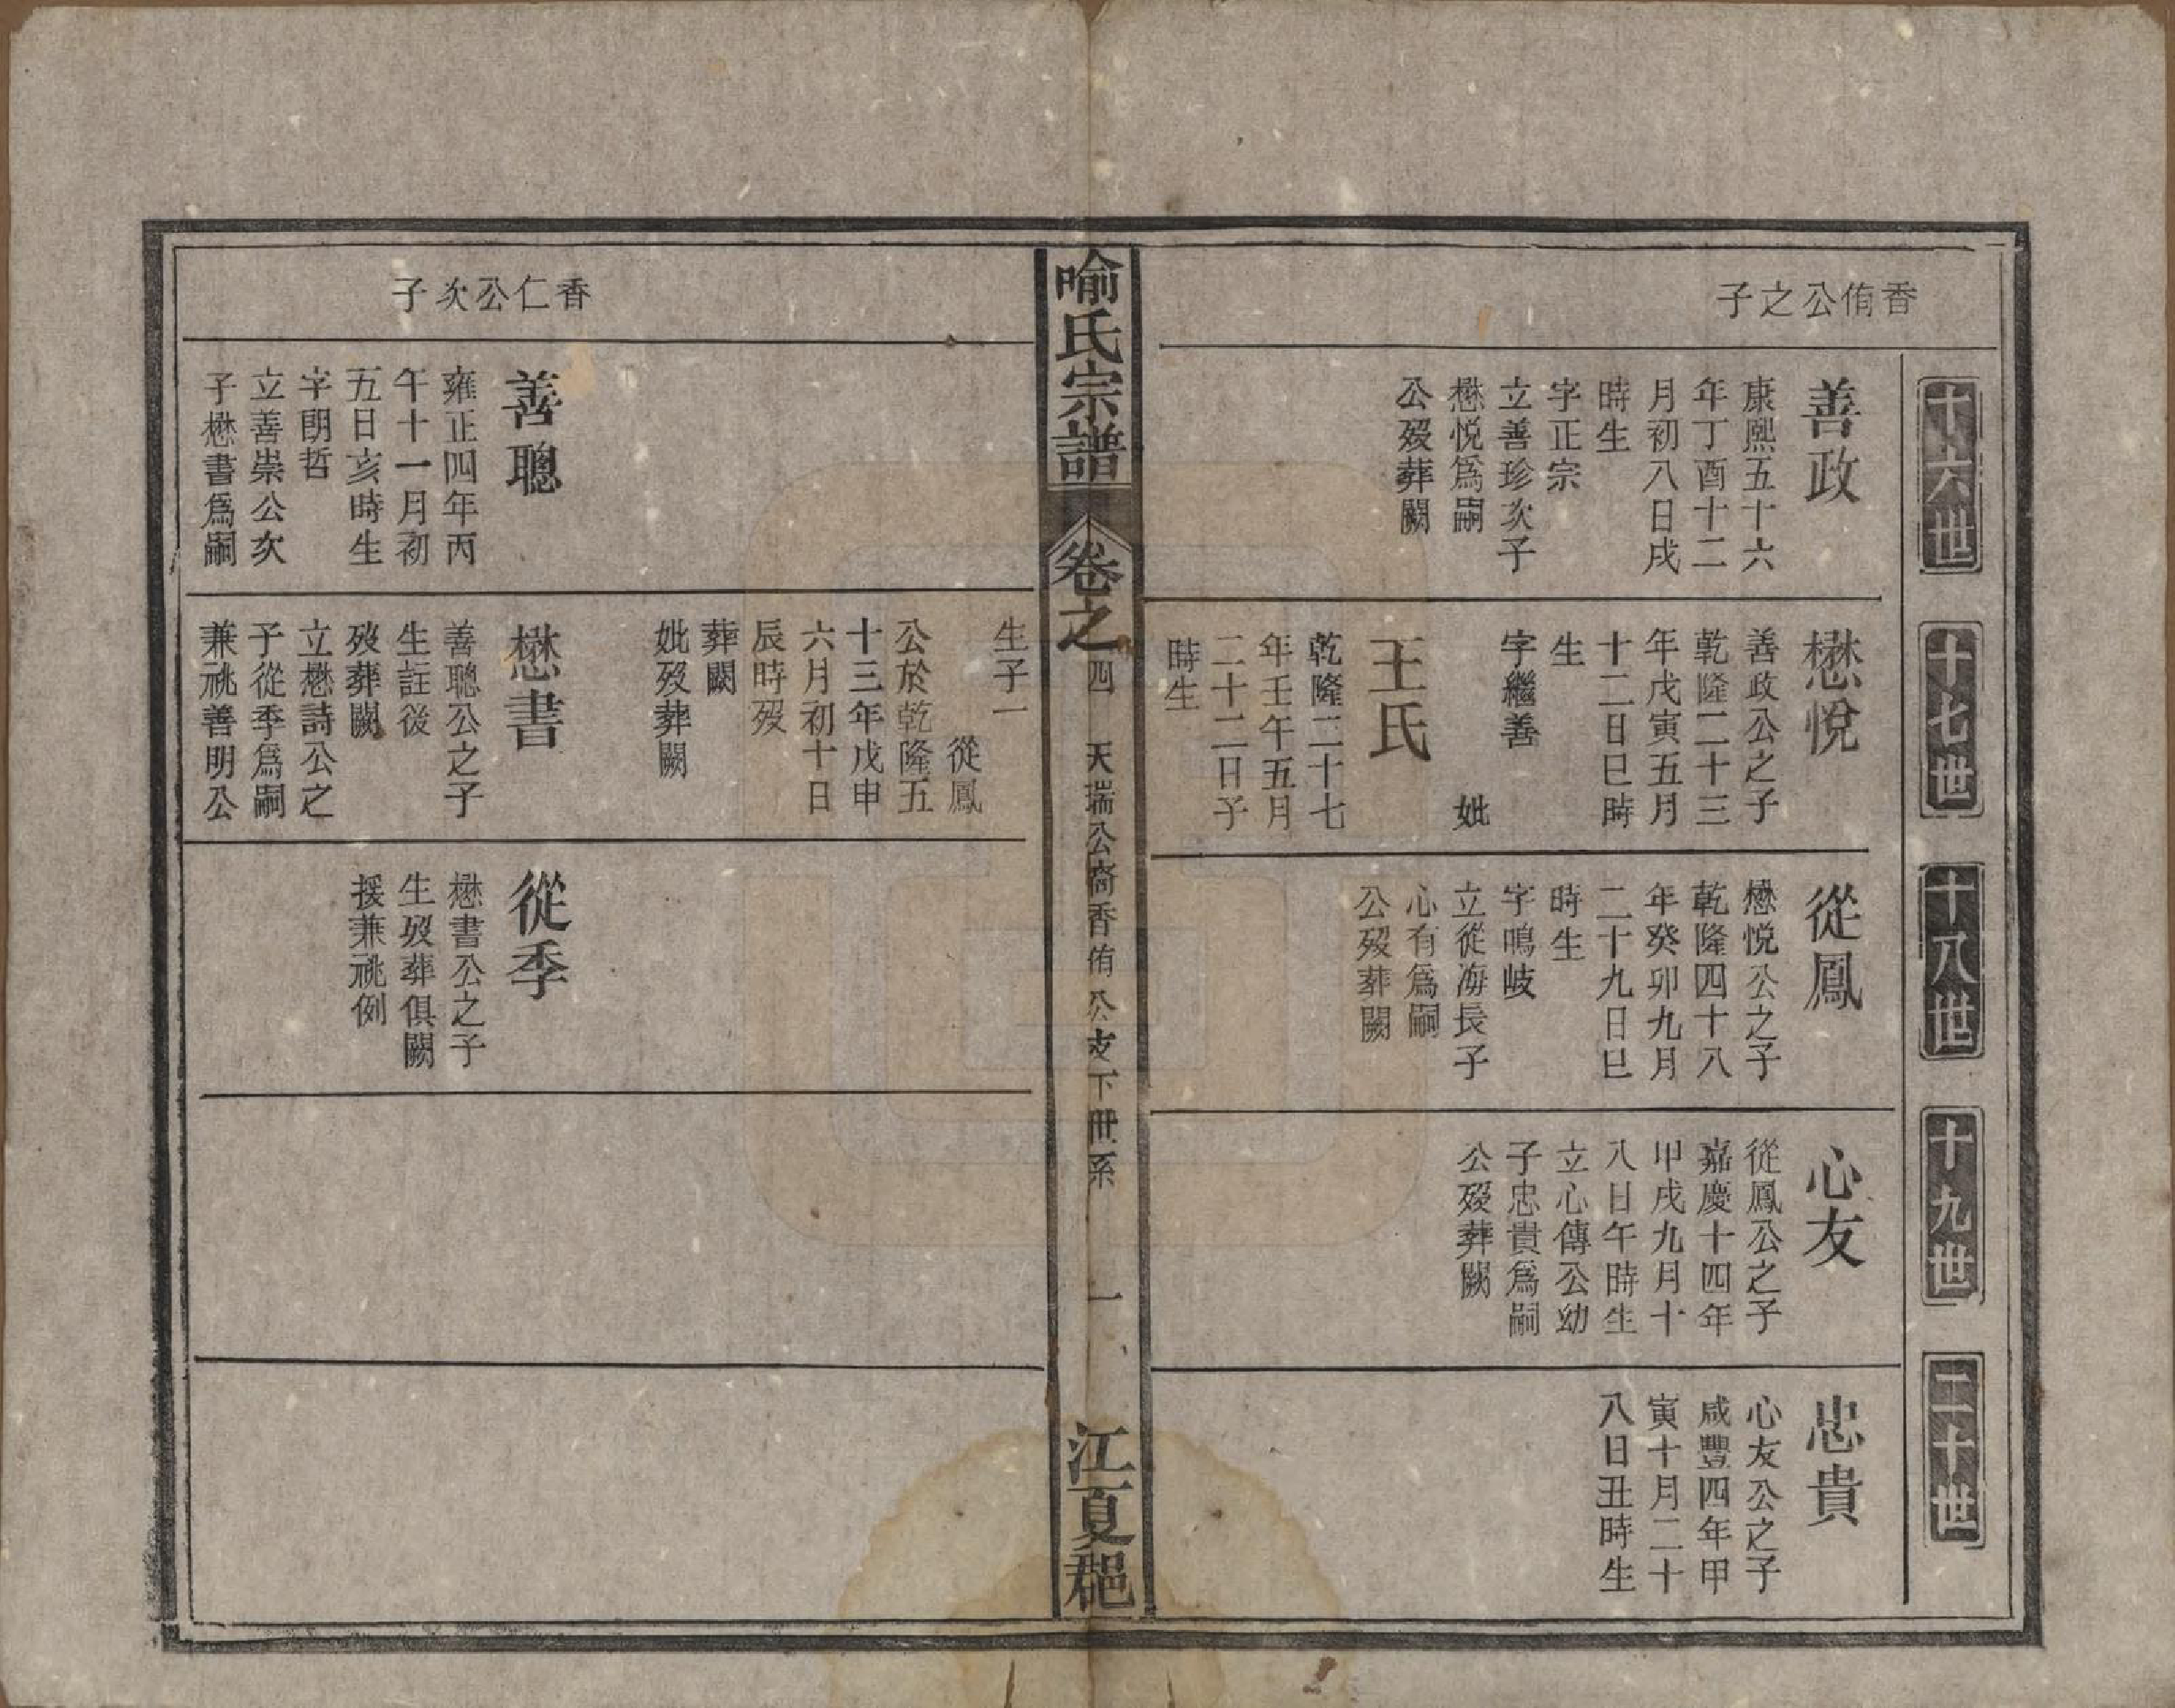 十六世
十七世
十八世
十九世
二十世
香侑公之子
善政
康熙五十六
年丁酉十二
月初八日戌
時生
字正宗
立善珍次子
懋悅爲嗣
公歿葬闕
懋悅
善政公之子
乾隆二十三
年戊寅五月
十二日巳時
生
字繼善
妣
王氏
乾隆二十七
年壬午五月
二十二日子
時生
從鳳
懋悅公之子
乾隆四十八
年癸卯九月
二十九日巳
時生
字鳴岐
立從海長子
心有爲嗣
公歿葬闕
心友
從鳳公之子
嘉慶十四年
甲戌九月十
八日午時生
立心傳公幼
子忠貴爲嗣
公歿葬闕
忠貴
心友公之子
咸豐四年甲
寅十月二十
八日丑時生
喻氏宗譜
卷之四
天瑞公裔香侑公支下世系
一
江夏郡
生子一
從鳳
公於乾隆五
十三年戊申
六月初十日
辰時歿
葬闕
妣歿葬闕
香仁公次子
善聰
雍正四年丙
午十一月初
五日亥時生
字朗哲
立善崇公次
子懋書爲嗣
懋書
善聰公之子
生註後
歿葬闕
立懋詩公之
子從季爲嗣
兼祧善明公
從季
懋書公之子
生歿葬俱闕
援兼祧例